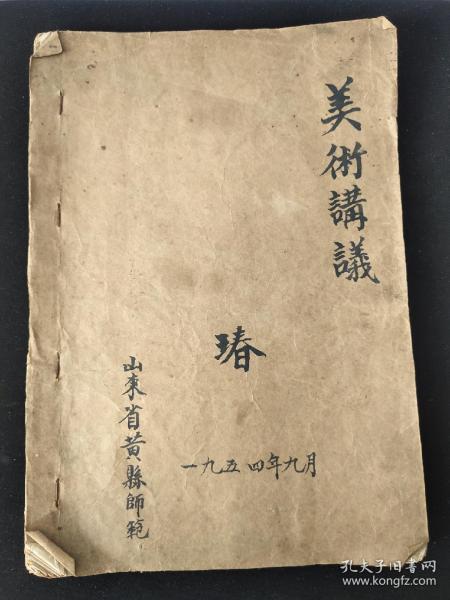 美術講議
瑃
山東省黃縣師範
一九五四年九月
孔夫子旧书网
www.kongfz.com